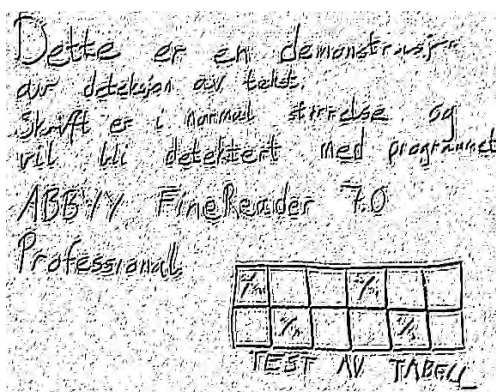 Dette er en demonstrasjon
av deteksjon av tekst.
Skrift er i normal størrelse og
vil bli detektert med programmet
ABBYY FineReader 7.0
Professional.
TEST AV TABELL